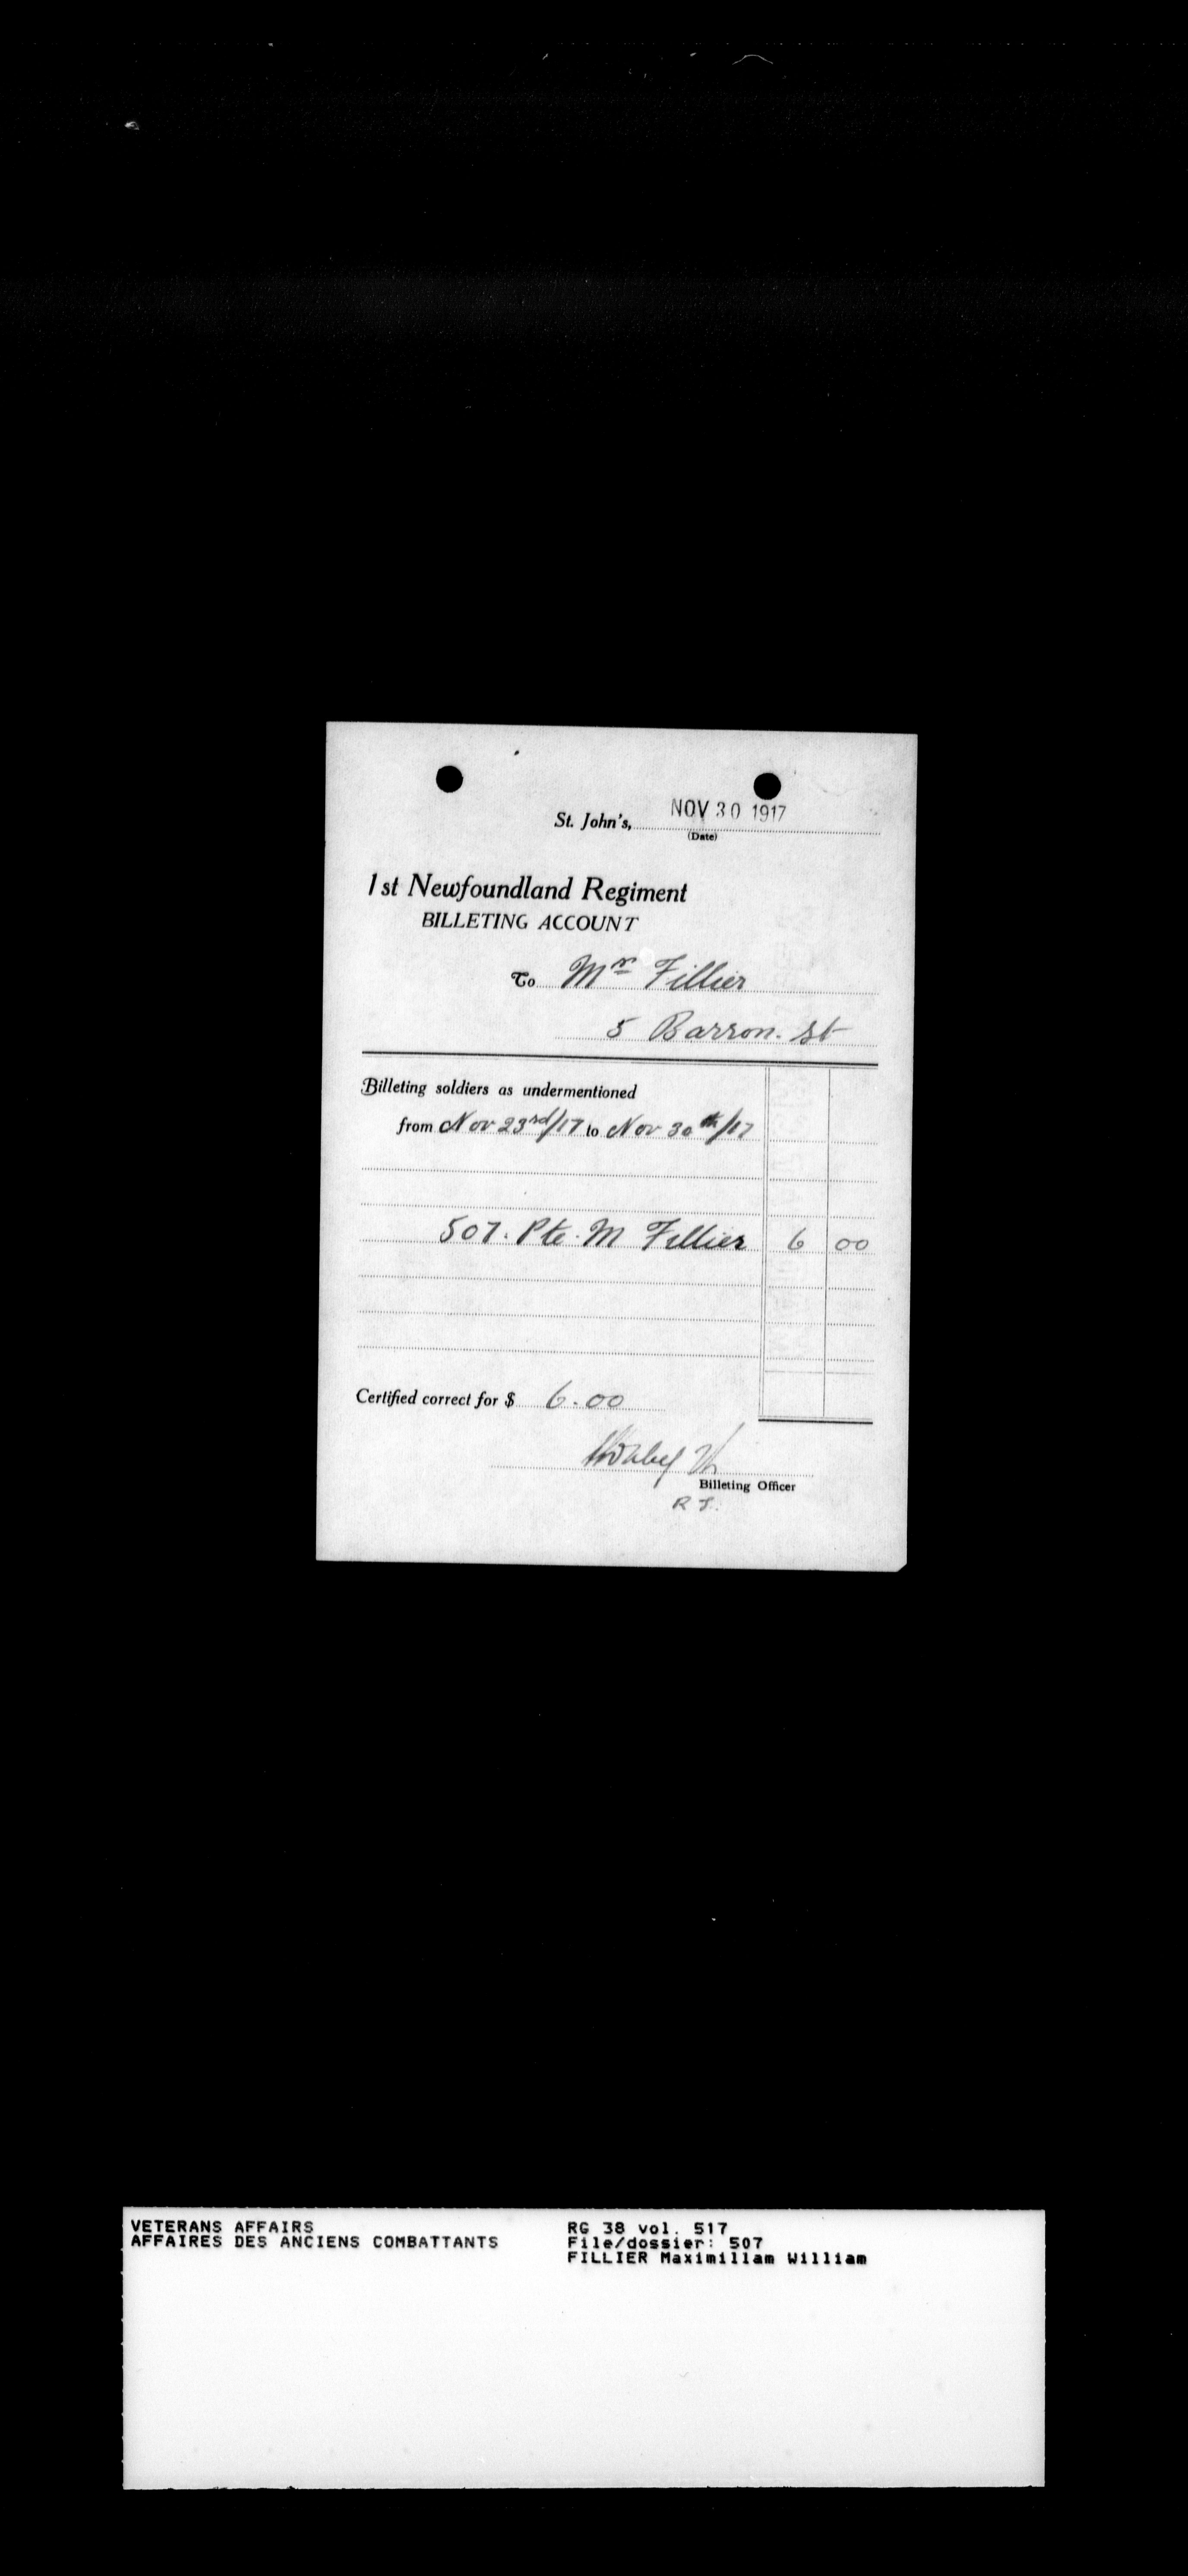 St. John's, NOV 30 1917
(Date)
1st Newfoundland Regiment
BILLETING ACCOUNT
To Mr Fillier
5 Barron. St
Billeting soldiers as undermentioned
from Nov 23rd/17 to Nov 30th/17
507. Pte. M Fillier 6 00
Certified correct for $ 6.00
Billeting Officer
VETERANS AFFAIRS
AFFAIRES DES ANCIENS COMBATTANTS
RG 38 vol. 517
File/dossier: 507
FILLIER Maximillam William